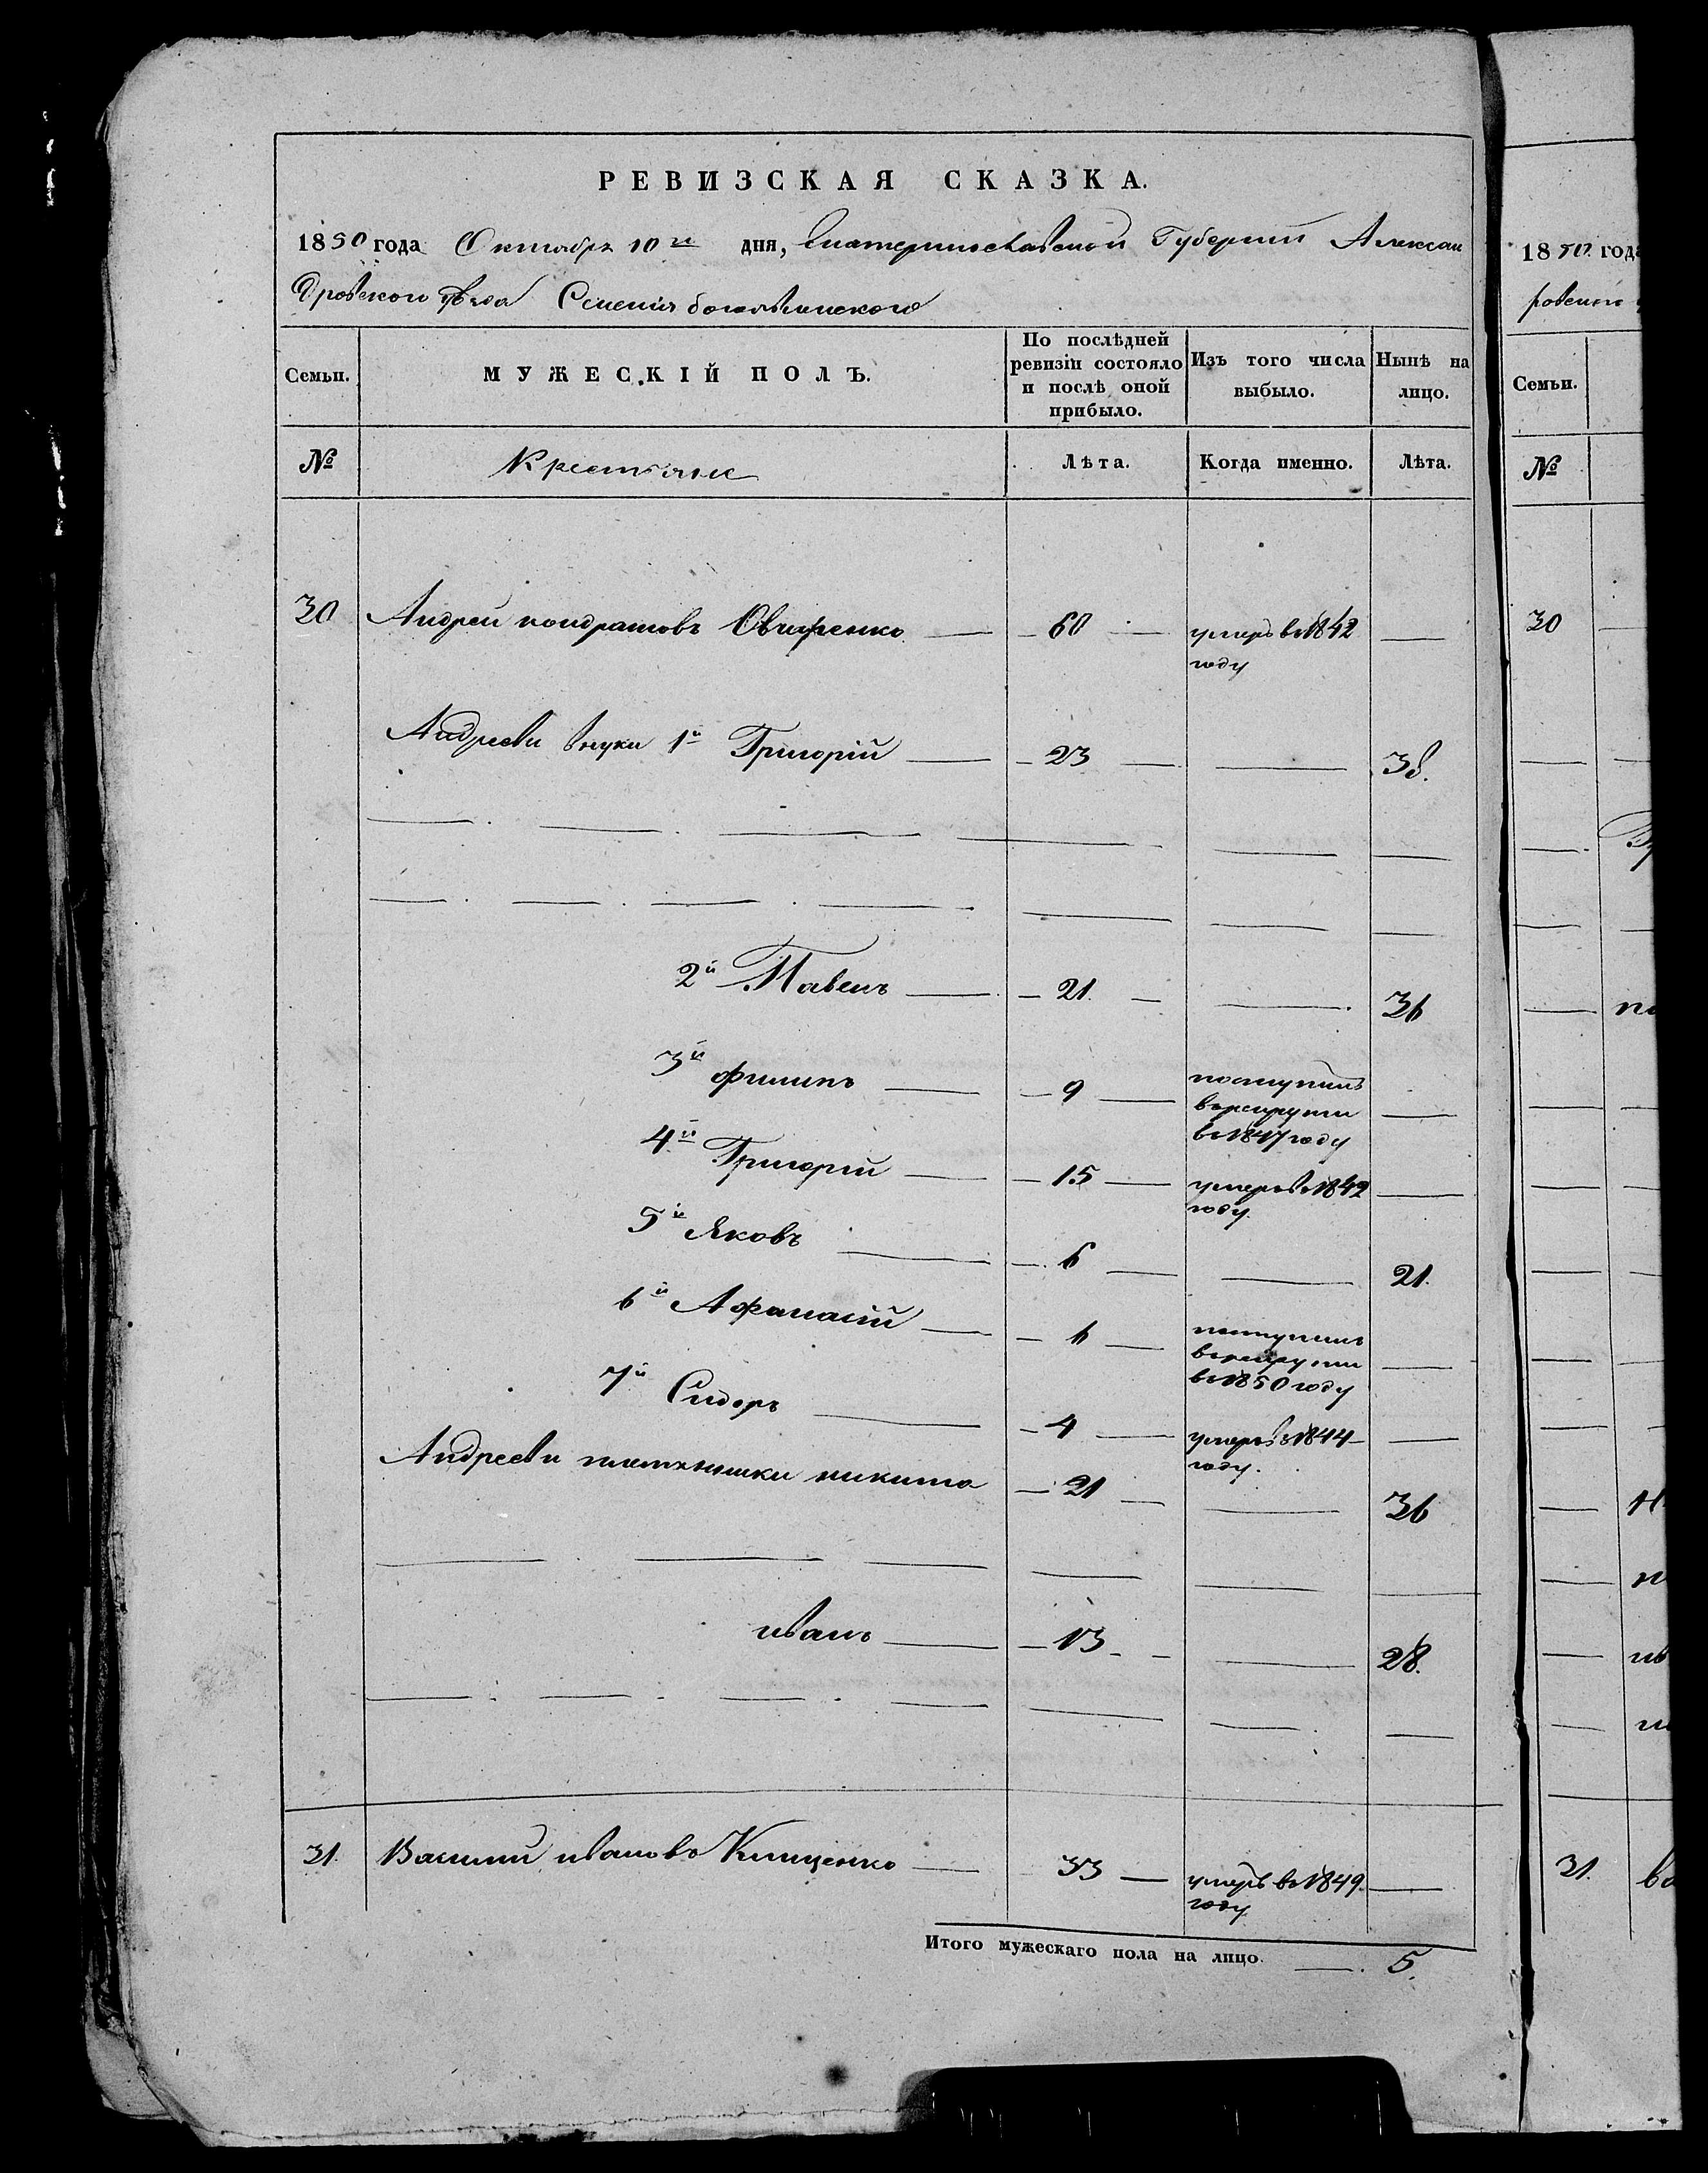 РЕВИЗСКАЯ СКАЗКА.
1850 года Октября 10го дня, Екатеринославской Губернии Алексан
дровского уезда Селения богоявленского
Семьи. МУЖЕСКІЙ ПОЛЪ. По послѣдней ревизіи состояло и послѣ оной прибыло. Изъ того числа выбыло. Нынѣ на лицо.
№ Крестьяне Лѣта. Когда именно. Лѣта.
30 Андреи кондратовъ Овчаренко 60 умеръ в 1842
году
Андрееви внуки 1й Григорій 23 38.
2й Павелъ 21 36
3й филипъ 9 поступилъ
в рекруты
в 1847 году
4й Григорій 15 умеръ в 1842
году
5й Яковъ 6 21.
6й Афанасій 6 поступилъ
в рекруты
в 1850 году
7й Сидоръ 4 умеръ в 1844
году.
Андрееви племянники никита 21 36
иванъ 13 28.
31. Василий ивановъ Клищенко 33 умеръ в 1849.
году
Итого мужескаго пола на лицо. 5.
18 50 года
ровского
Семьи.
№
30
31.